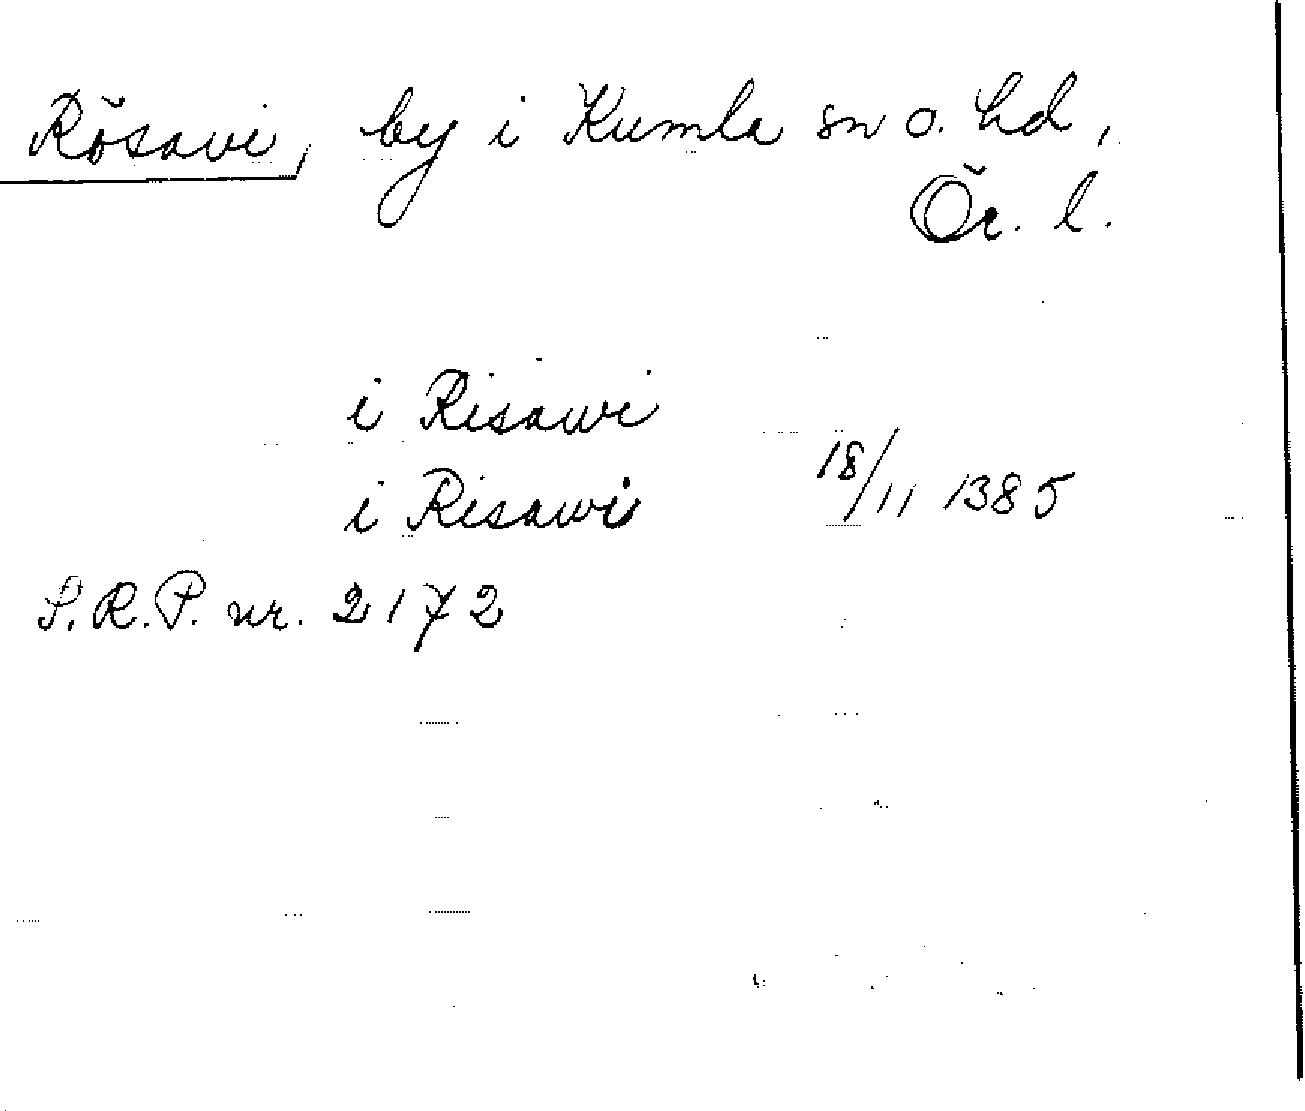 Rösavi, by i Kumla sn o. hd,
Ör. l.
i Risawi
i Risawi 18/11 1385
S.R.P. nr. 2172